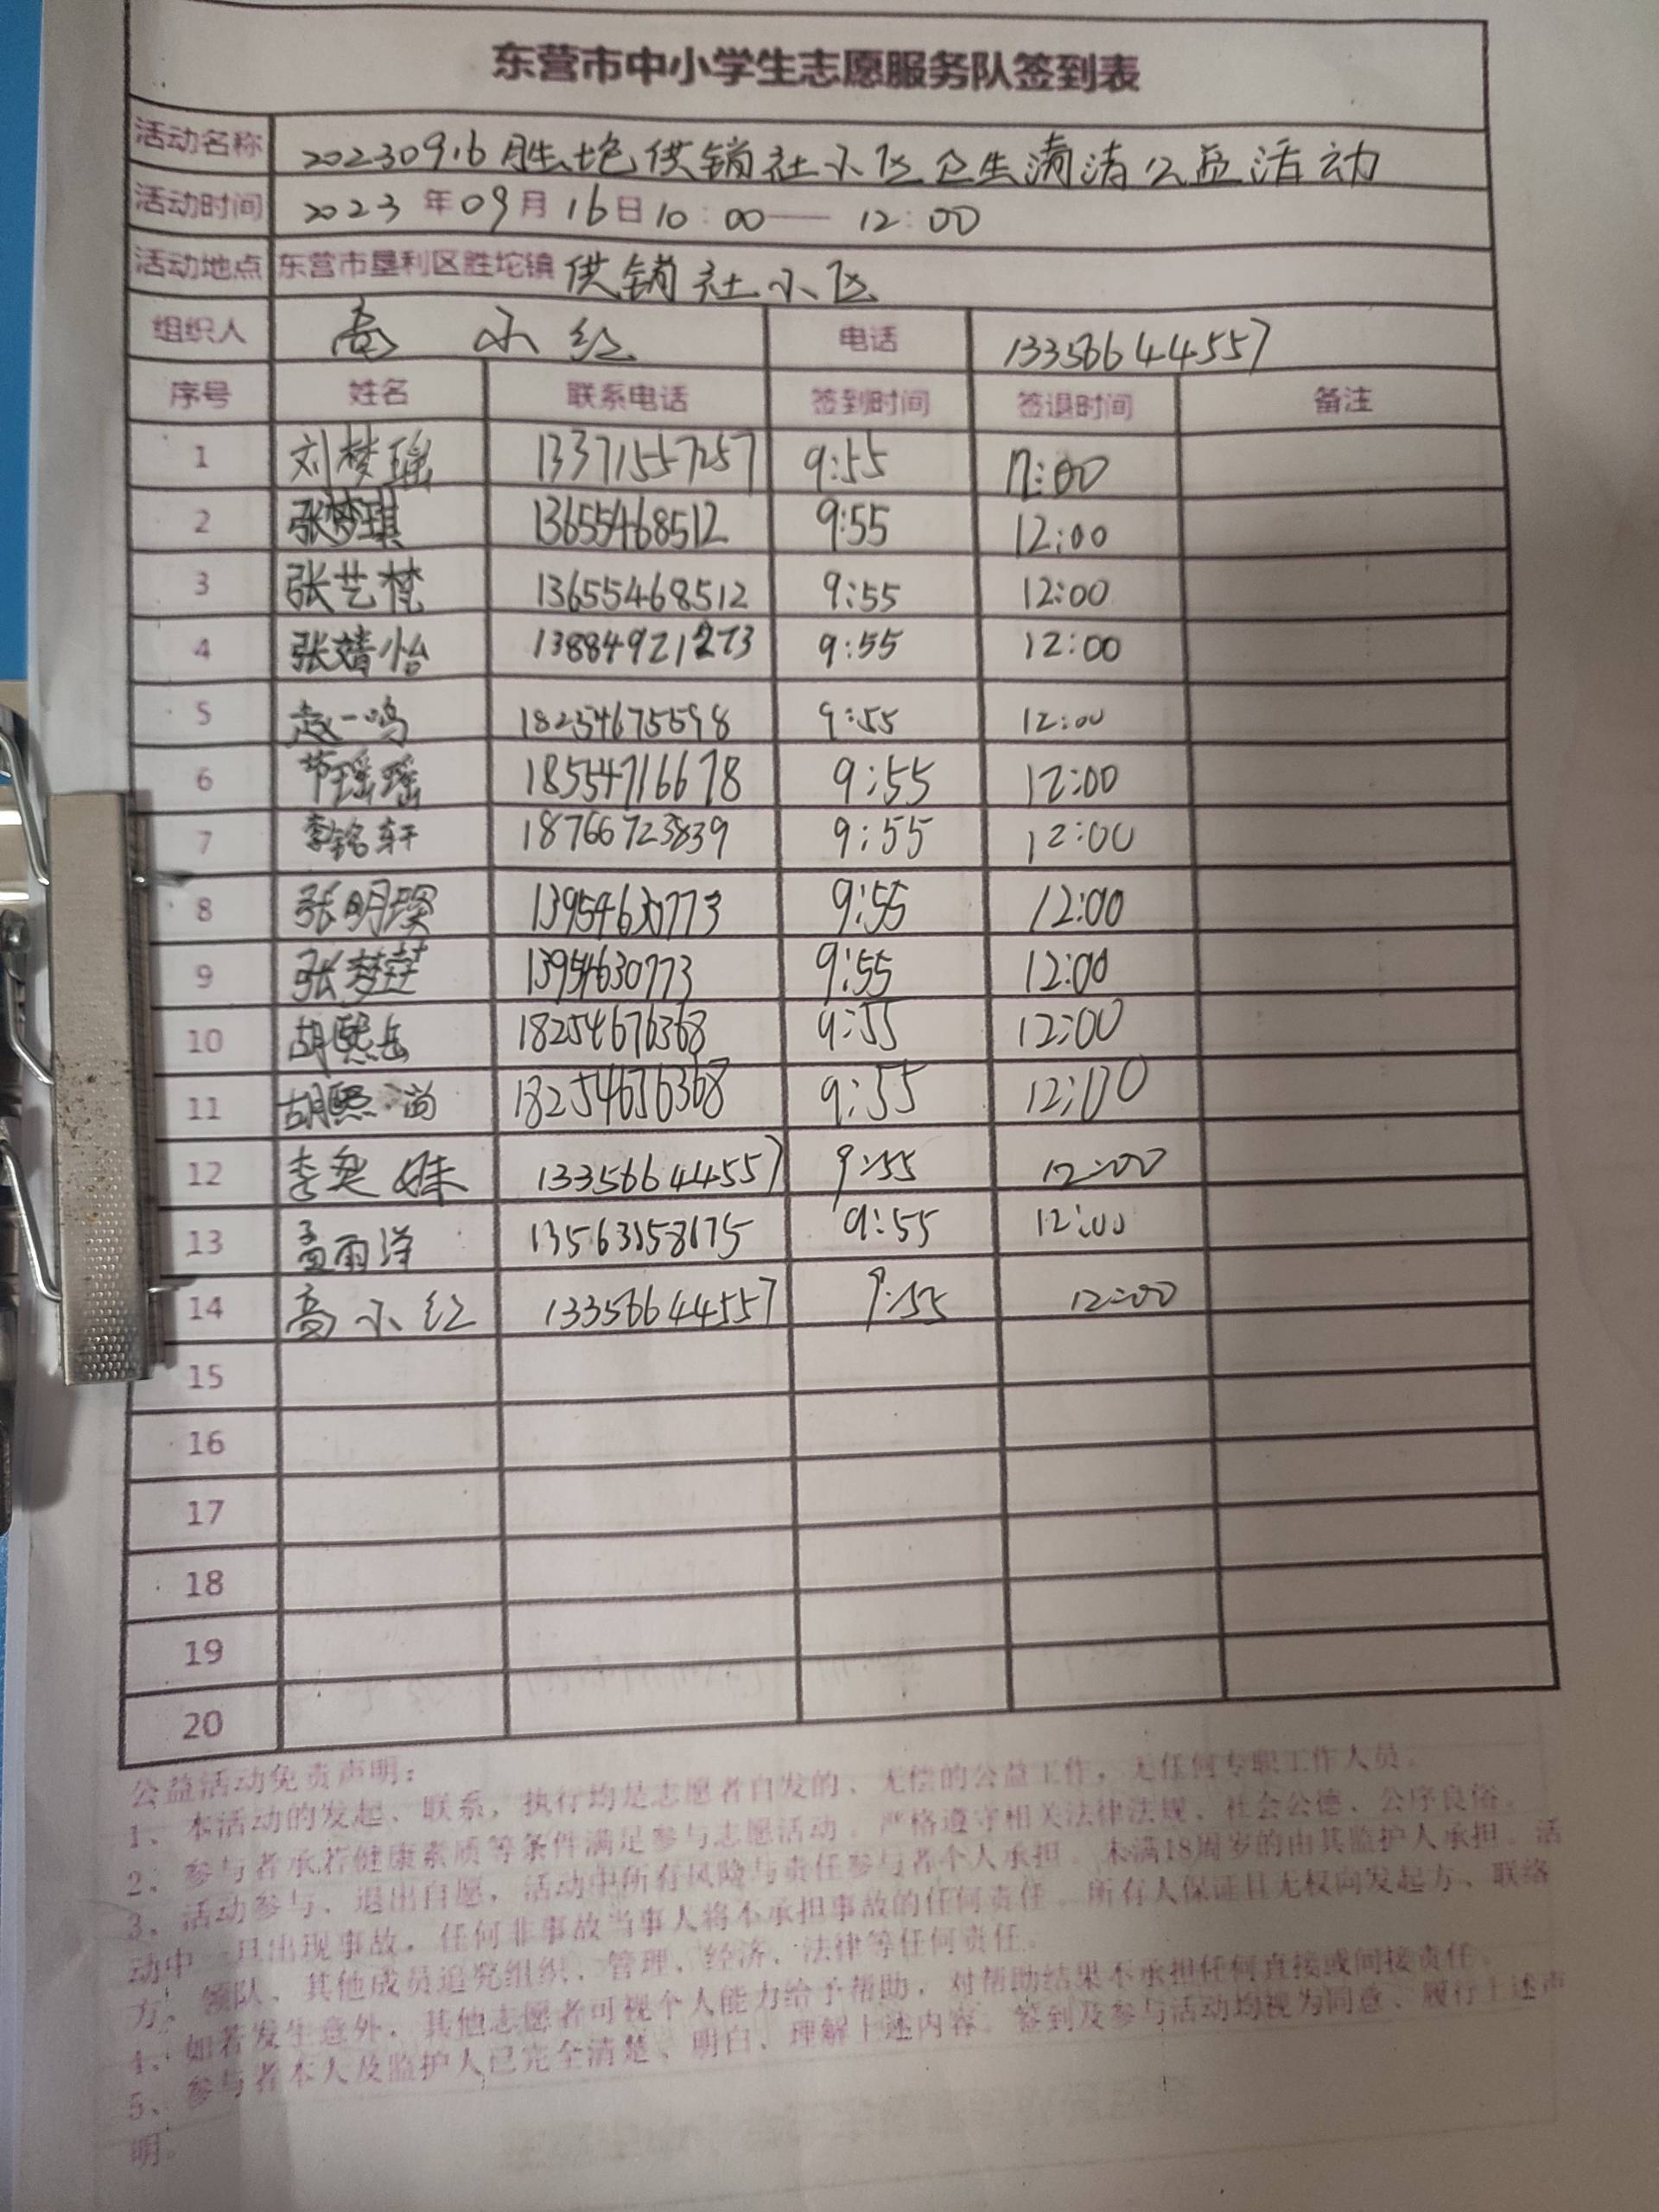 东营市中小学生志愿服务队签到表
活动名称 20230916胜坨供销社小区卫生清洁公益活动
活动时间 2023年09月16日10:00—12:00
活动地点 东营市垦利区胜坨镇 供销社小区
组织人 高小红 电话 13356644557
序号 姓名 联系电话 签到时间 签退时间 备注
1 刘梦瑶 13371557257 9:55 12:00
2 张梦琪 13655468512 9:55 12:00
3 张艺梵 13655468512 9:55 12:00
4 张婧怡 13884921273 9:55 12:00
5 赵一鸣 18254675598 9:55 12:00
6 瑶瑶 18554716678 9:55 12:00
7 李铭轩 18766723839 9:55 12:00
8 张明 13954630773 9:55 12:00
9 张梦 13954630773 9:55 12:00
10 胡熙岳 18254676368 9:55 12:00
11 胡熙尚 18254676368 9:55 12:00
12 李奕姝 13356644557 9:55 12:00
13 孟雨泽 13563158175 9:55 12:00
14 高小红 13356644557 9:55 12:00
15
16
17
18
19
20
公益活动免责声明：
1、本活动的发起、联系，执行均是志愿者自发的、无偿的公益工作，无任何专职工作人员。
2、参与者承若健康素质等条件满足参与志愿活动。严格遵守相关法律法规、社会公德、公序良俗。
3、活动参与、退出自愿，活动中所有风险与责任参与者个人承担。未满18周岁的由其监护人承担。活
动中一旦出现事故，任何非事故当事人将不承担事故的任何责任。所有人保证且无权向发起方、联络
方、领队、其他成员追究组织、管理、经济、法律等任何责任。
4、如若发生意外，其他志愿者可视个人能力给予帮助，对帮助结果不承担任何直接或间接责任。
5、参与者本人及监护人已完全清楚、明白、理解上述内容。签到及参与活动均视为同意、履行上述声
明。